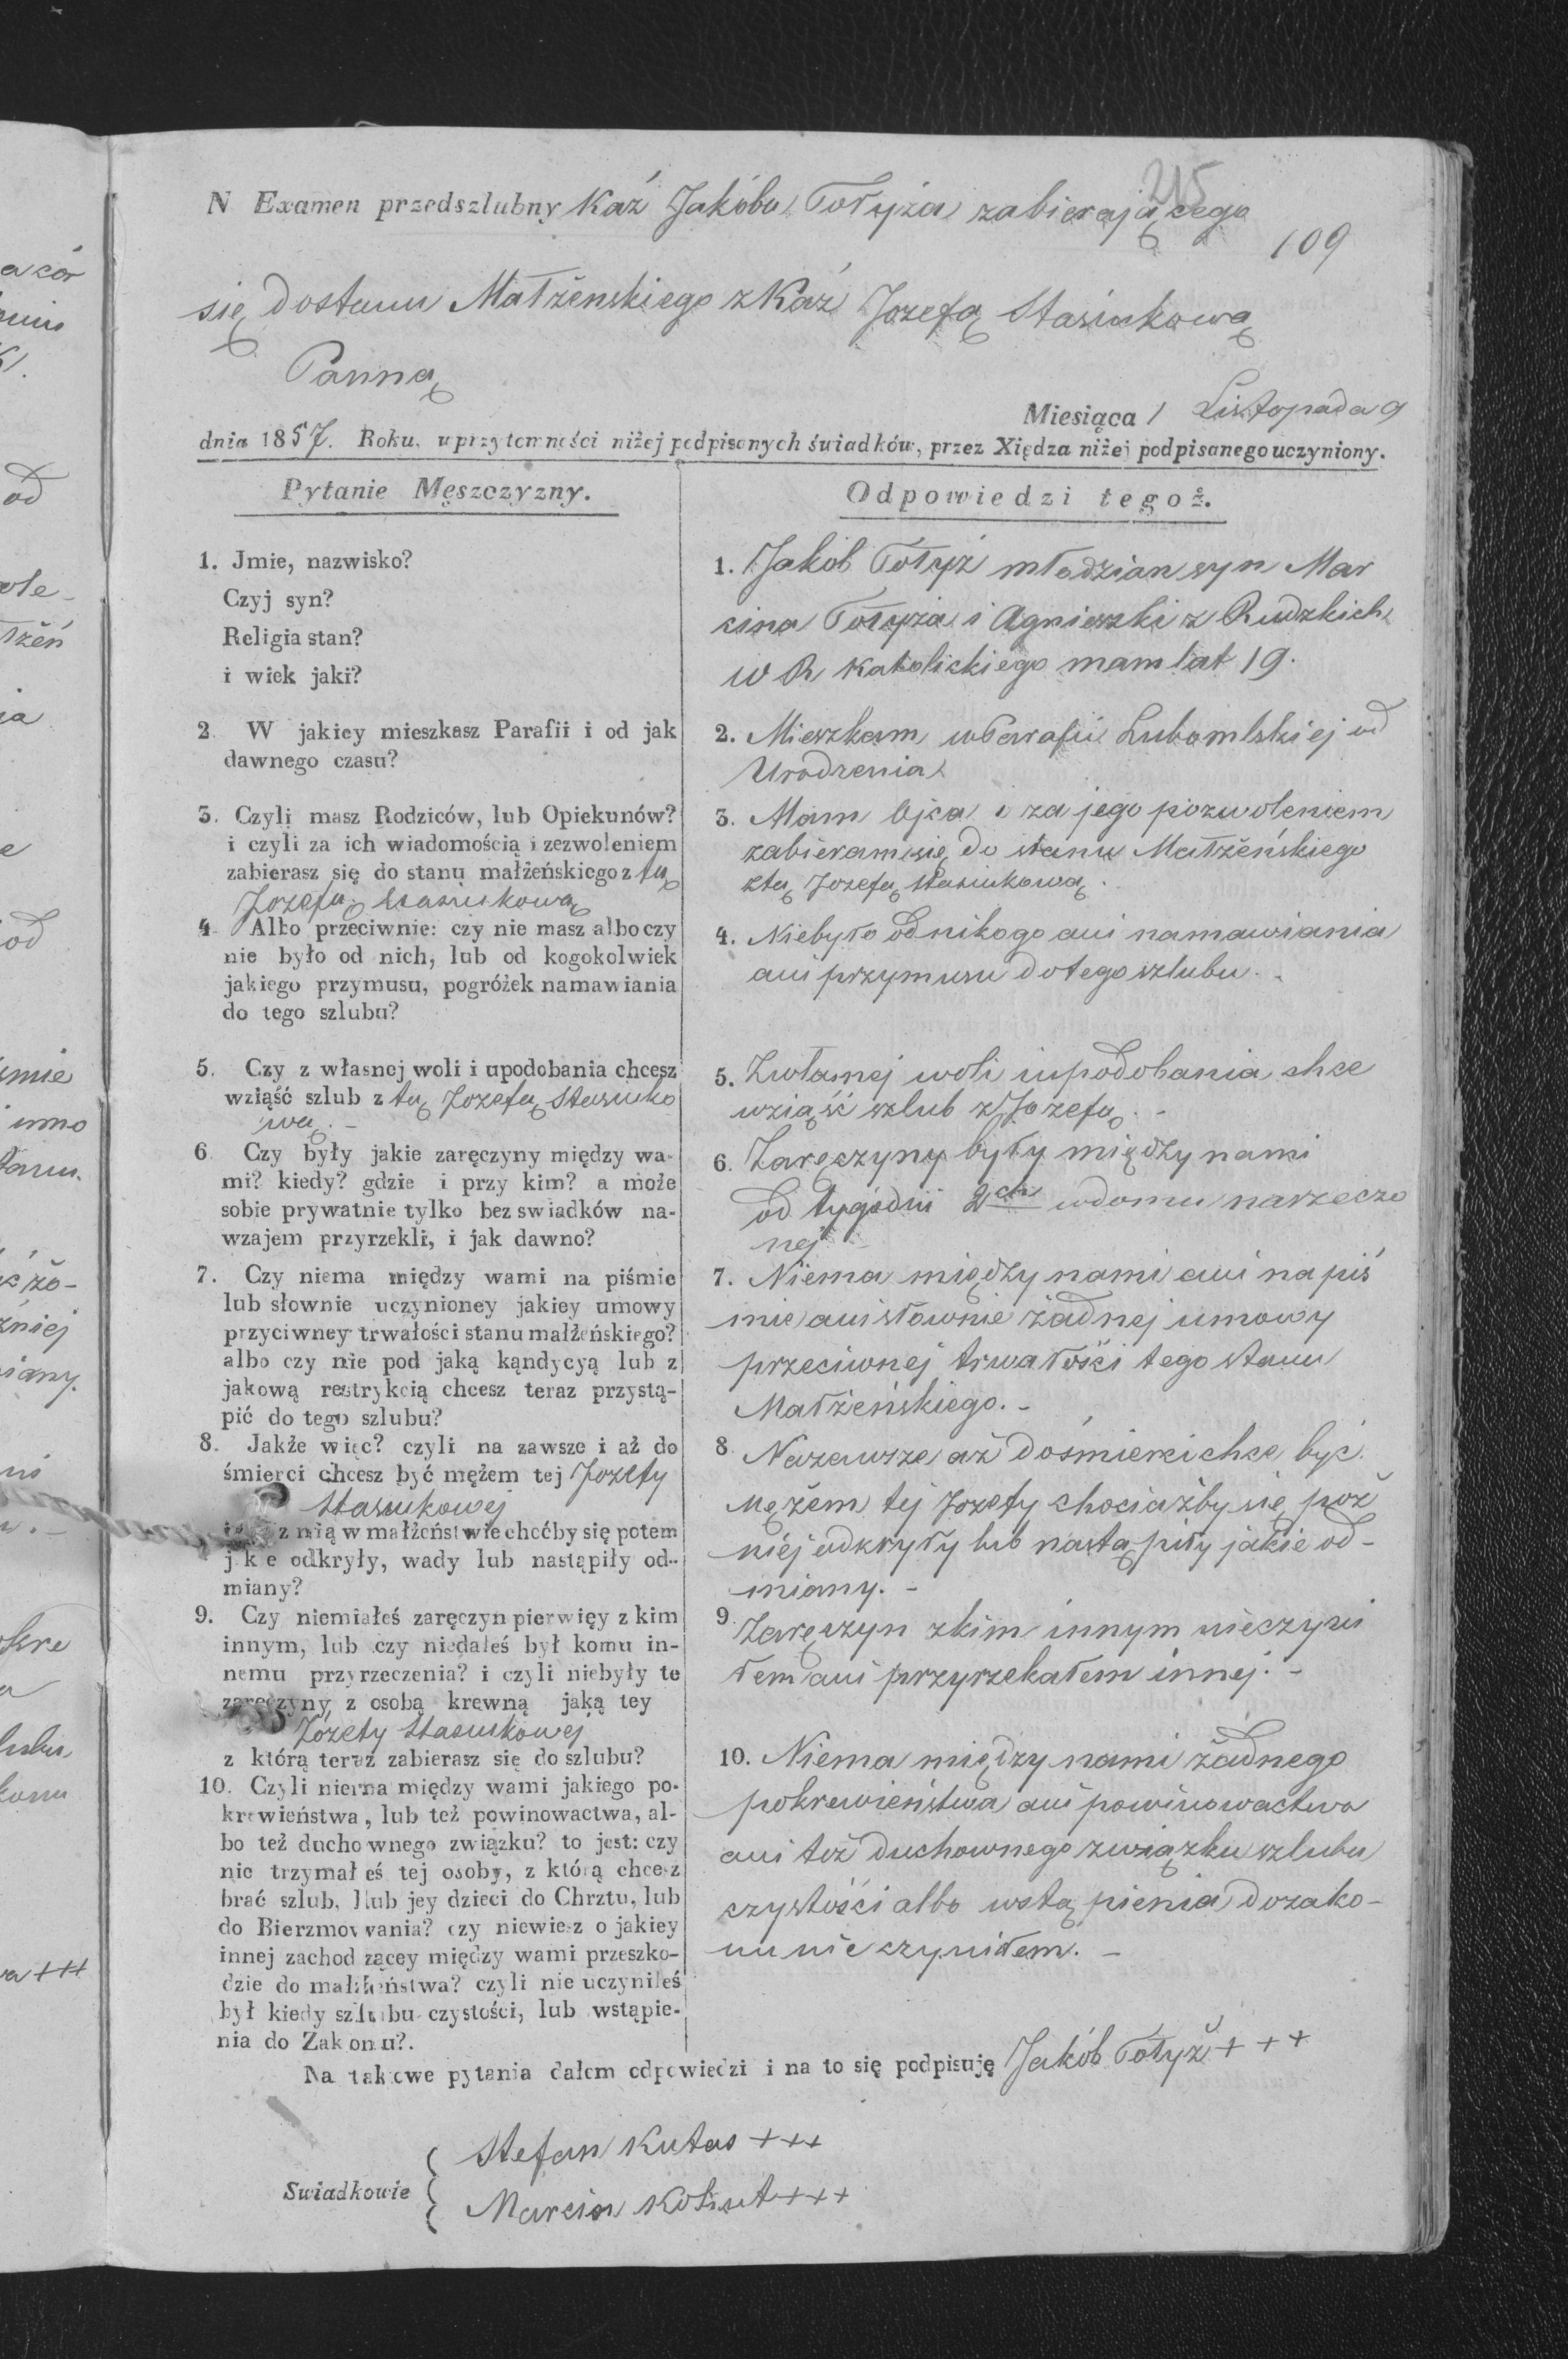 215
N Examen przedszlubny Kaź Jakóba Tołyża zabierającego
109
się dostanu Małżenskiego z Kaź Jozefą Stasiukową
Panną
Miesiąca Listopada 9
dnia 1857. Roku, w przytomności niżej podpisanych świadków, przez Xiędza niżej podpisanego uczyniony.
Pytanie Męszczyzny.
1. Jmie, nazwisko?
Czyj syn?
Religia stan?
i wiek jaki?
2 W jakiey mieszkasz Parafii i od jak
dawnego czasu?
3. Czyli masz Rodziców, lub Opiekunów?
i czyli za ich wiadomością i zezwoleniem
zabierasz się do stanu małżeńskiego z tą
Jozefą Stasiukową
4 Albo przeciwnie: czy nie masz albo czy
nie było od nich, lub od kogokolwiek
jakiego przymusu, pogróżek namawiania
do tego szlubu?
5. Czy z własnej woli i upodobania chcesz
wziąść szlub z tą Jozefą Stasiuko
wą. -
6 Czy były jakie zaręczyny między wa-
mi? kiedy? gdzie i przy kim? a może
sobie prywatnie tylko bez swiadków na-
wzajem przyrzekli, i jak dawno?
7. Czy niema między wami na piśmie
lub słownie uczynioney jakiey umowy
przyciwney trwałości stanu małżeńskiego?
albo czy nie pod jaką kąndycyą lub z
jakową restrykcią chcesz teraz przystą-
pić do tego szlubu?
8. Jakże więc? czyli na zawsze i aż do
śmierci chcesz być mężem tej Jozefy
Stasiukowej
z nią w małżeństwie choćby się potem
jkie odkryły, wady lub nastąpiły od-
miany?
9. Czy niemiałeś zaręczyn pierwięy z kim
innym, lub czy niedałeś był komu in-
nemu przyrzeczenia? i czyli niebyły te
zaręczyny, z osobą krewną jaką tey
Józefy Stasiukowej
z którą teraz zabierasz się do szlubu?
10. Czyli niema między wami jakiego po-
krewieństwa, lub też powinowactwa, al-
bo też duchownego związku? to jest: czy
nie trzymałeś tej osoby, z którą chcesz
brać szlub, lub jey dzieci do Chrztu, lub
do Bierzmowania? czy niewiesz o jakiey
innej zachodzącey między wami przeszko-
dzie do małżeństwa? czyli nie uczyniłeś
był kiedy szlubu czystości, lub wstąpie-
nia do Zakonu?.
Odpowiedzi tegoż.
1. Jakób Tołyż młodzian syn Mar
cina Tołyża i Agnieszki z Rudzkich
W R Katolickiego mam lat 19.
2. Mieszkam w Parafii Lubomlskiej od
Urodzenia
3. Mam Ojca i za jego pozwoleniem
zabieram się do stanu Małżeńskiego
ztą Jozefą Stasiukową.
4. Niebyło od nikogo ani namawiania
ani przymusu do tego szlubu.
5. Zwłasnej woli i upodobania chce
wziąść szlub z Jozefą. -
6. Zaręczyny były między nami
od tygodni 2ch w domu narzeczo
nej
7. Niema między nami ani na piś
mie ani słownie żadnej umowy
przeciwnej trwałości tego stanu
Małżeńskiego. -
8 Nazawsze aż do śmierci chce być
Mężem tej Jozefy chociażby się poź
niéj odkryły lub nastąpiły jakie od-
miany. -
9. Zaręczyn zkim innym nieczyni
łem ani przyrzekałem innej. -
10. Niema między nami żadnego
pokrewieństwa ani powinowactwa
ani też duchownego związku szlubu
czystości albo wstąpienia dozako-
nu nie czyniłem. -
Na takowe pytania dałem odpowiedzi i na to się podpisuję Jakób Tołyż + + +
Swiadkowie
Stefan Kutas +++
Marcin Kohut +++